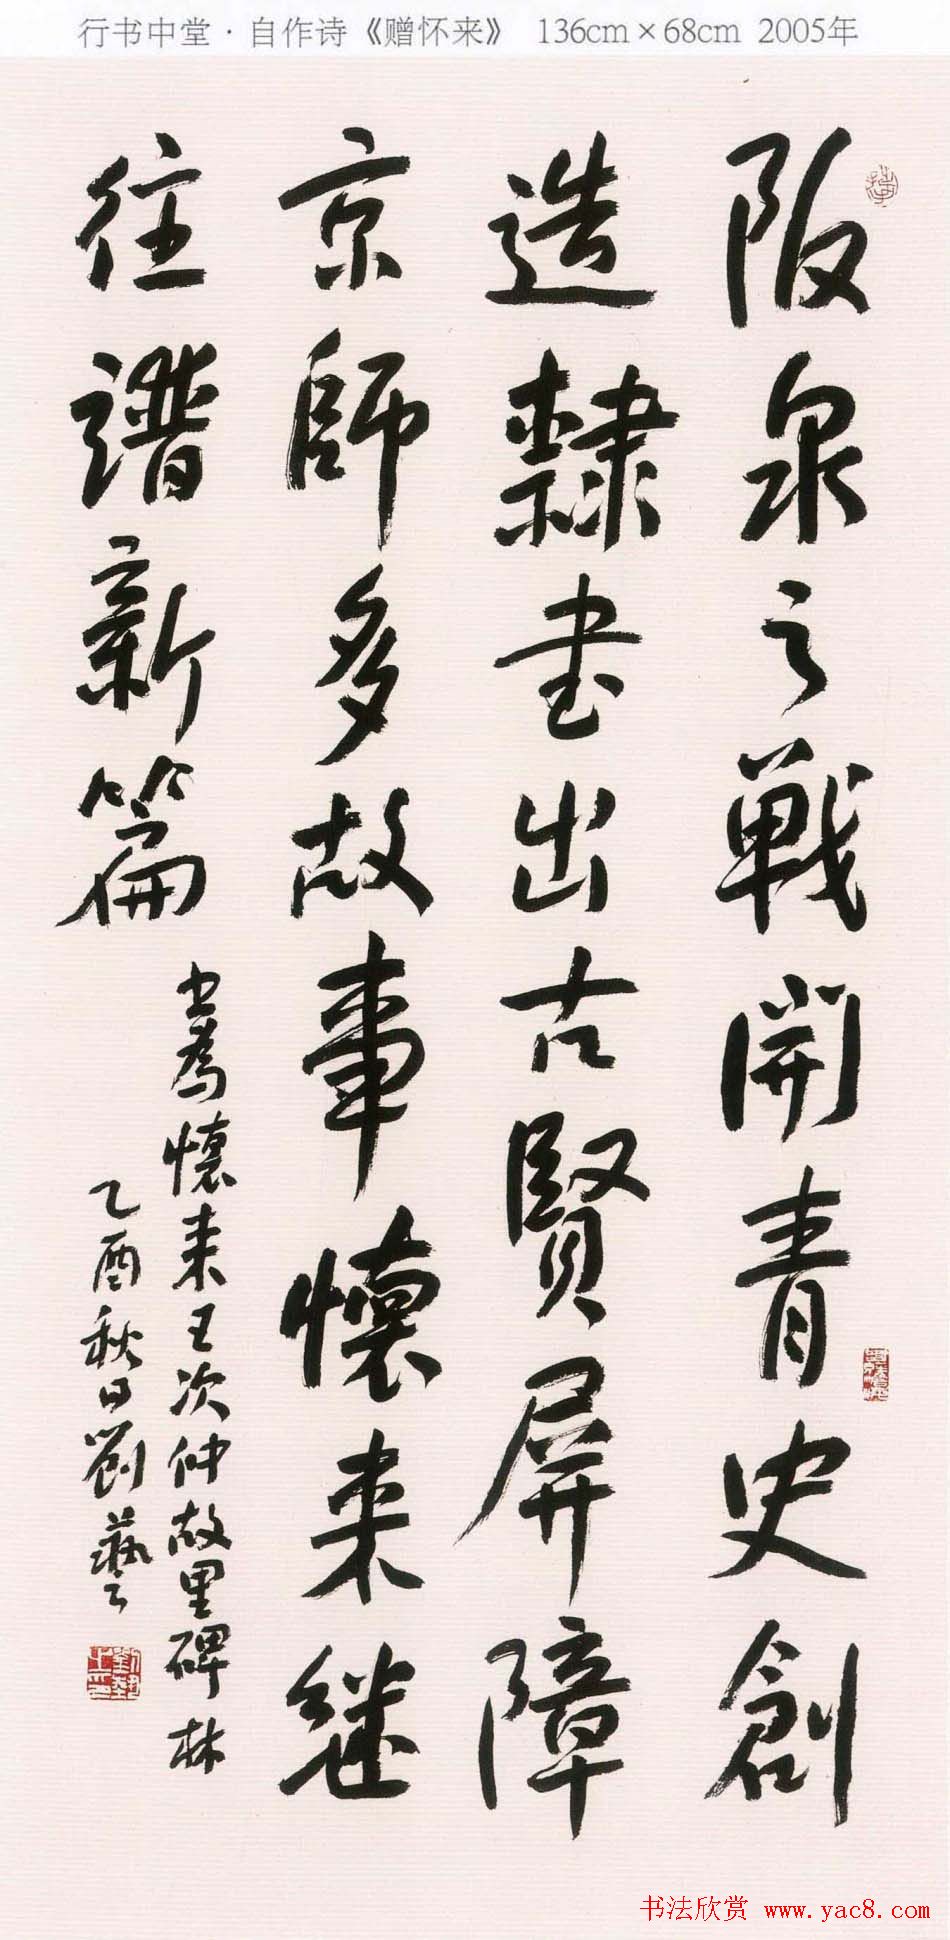 行书中堂·自作诗《赠怀来》 136cm×68cm 2005年
阪泉之戰開青史創
造隸书出古賢屏障
京師多故事懷来继
往譜新篇
书為懷来王次仲故里碑林
乙酉秋日劉藝
书法欣赏 www.yac8.com